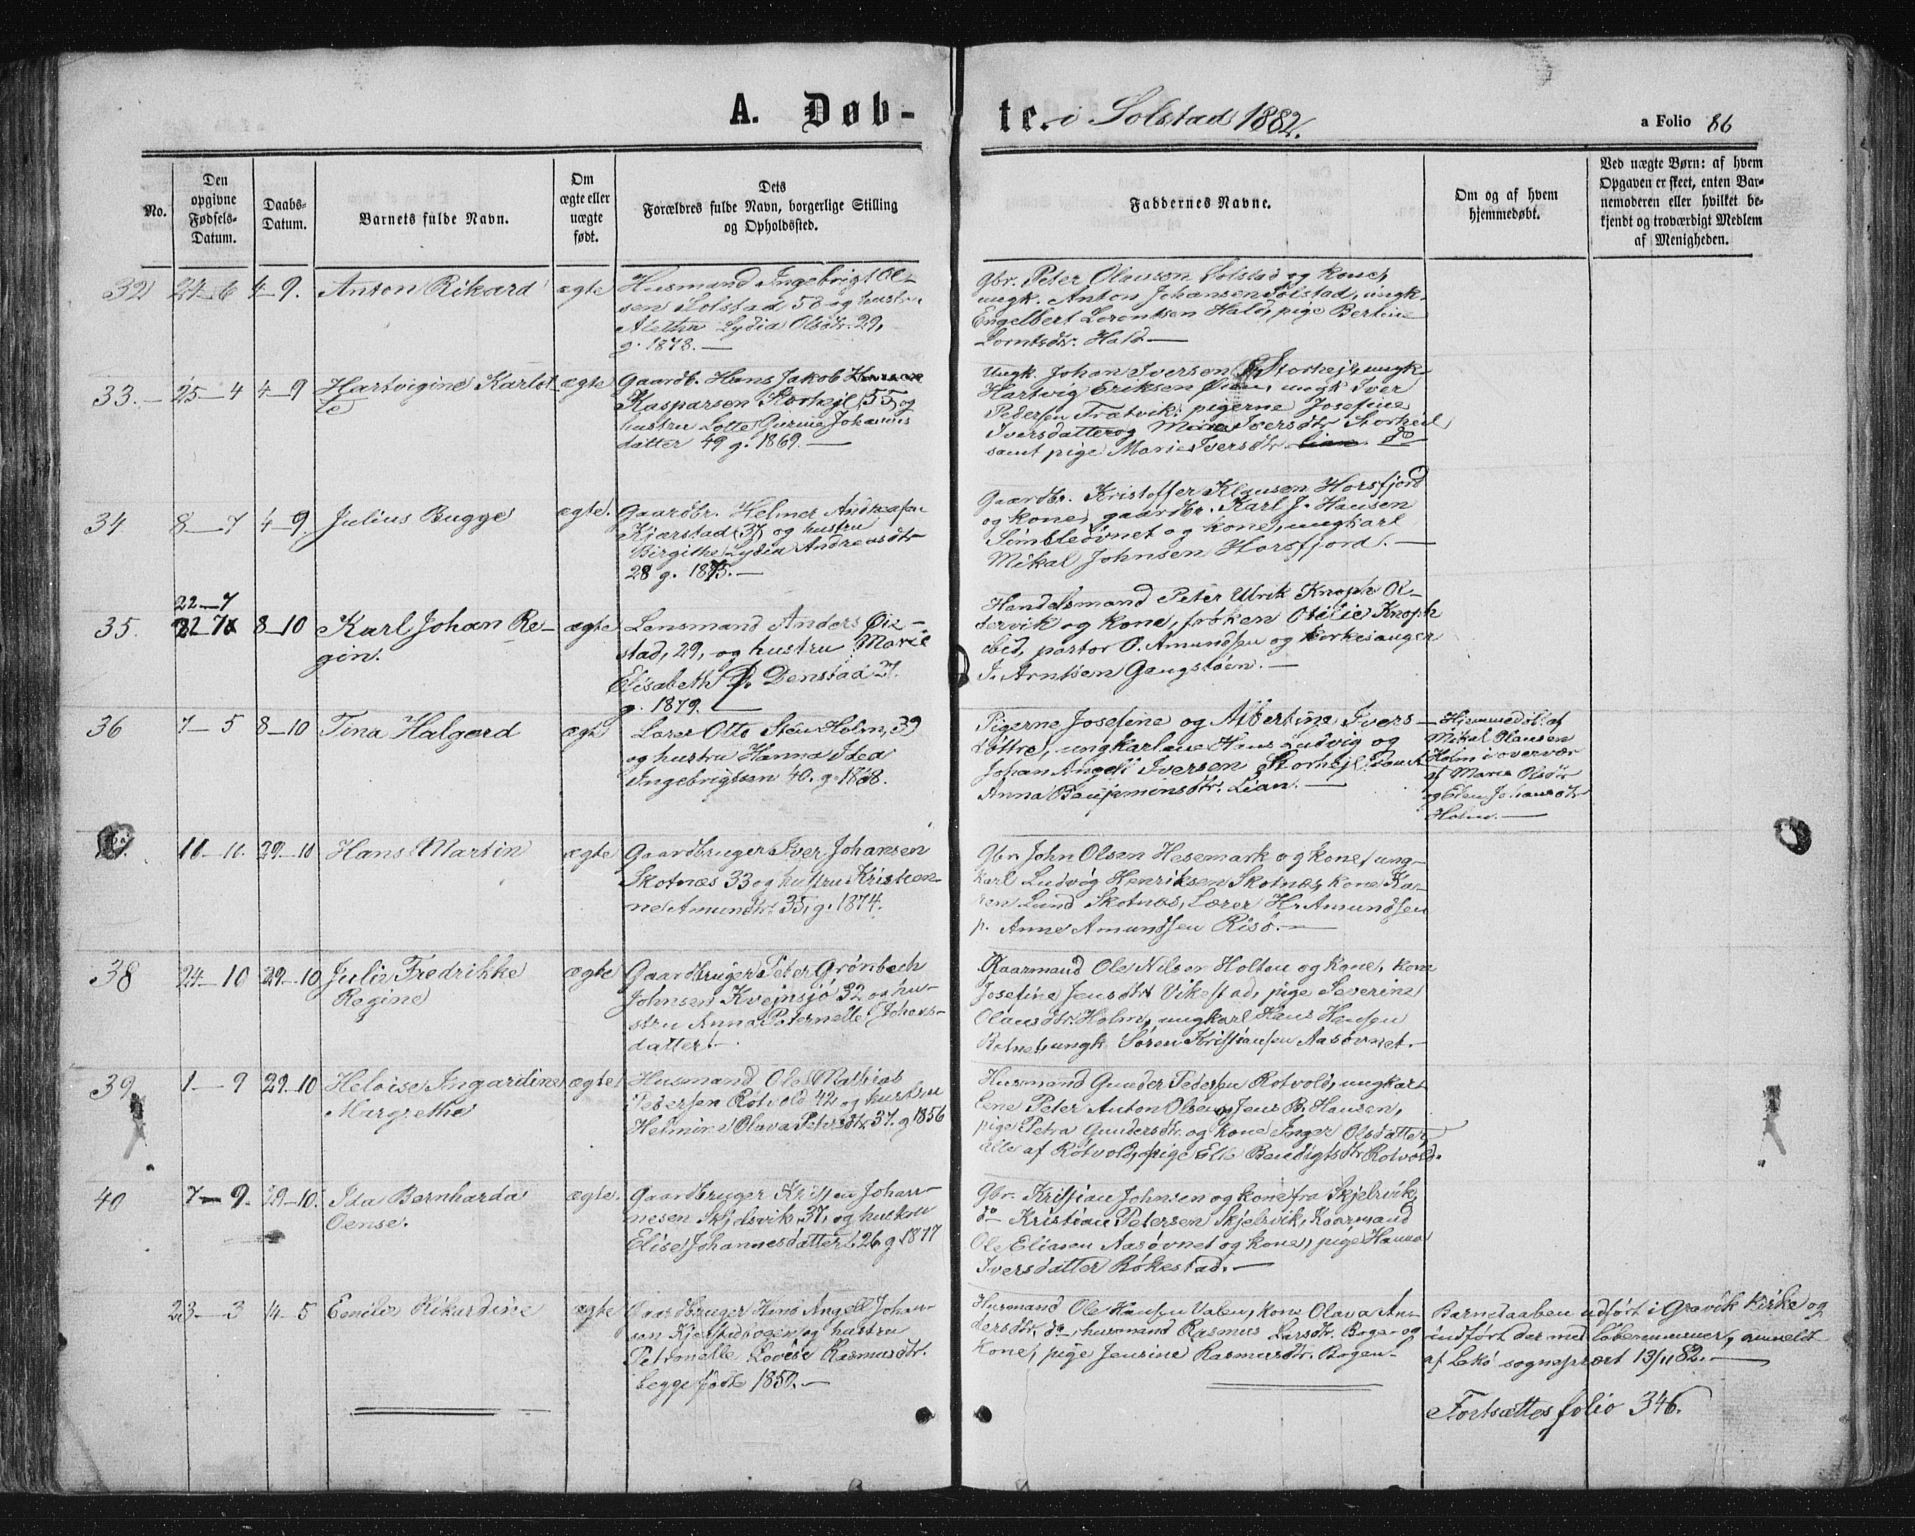 A. Døb-
te. i Solstad 1882.
a Folio 86
No.
Den
opgivne
Fødsels-
Datum.
Daabs-
Datum.
Barnets fulde Navn.
Om
ægte eller
uægte
født.
Dets
Forældres fulde Navn, borgerlige Stilling
og Opholdssted.
Faddernes Navne.
Om og af hvem
hjemmedøbt.
Ved uægte Børn: af hvem
Opgaven er skeet, enten Bar-
nemoderen eller hvilket be-
kjendt og troværdigt Medlem
af Menigheden.
32 24-6 4-9. Anton Rikard ægte
Husmand Ingebrigt Ol-
sen Solstad 58 og hustr.
Alethe Lydia Olsdtr. 29,
g. 1878.—
Gbr. Peter Olausen Solstad og kone,
ungk. Anton Johansen Solstad, ungk.
Engelbert Lorentsen Hald, pige Bertine
Lorntsdtr. Hald—
33.- 25-4 4-9 Hartvigine Karlot
te
ægte
Gaardb. Hans Jakob
Kasparsen Storhejl (55) og
hustru Lotte Gurine Johannes
datter 49 g. 1869.—
Ungk. Johan Iversen Storhejl, ungk
Hartvig Eriksen Øien, ungk Iver
Pedersen Trætvik, pigerne Josefine
Iversdatter og Iversdtr Storheil
samt pige Marie Iversdtr Lian do
34 8-7 4-9. Julius Bugge ægte.
Gaardbr. Helmer Andreassen
Kjærstad (37) og hustru
Birgithe Lydia Andreasdtr
28 g. 1875.—
Gaardbr. Kristoffer Klausen Horsfjord
og kone, gaardbr. Karl J. Hansen
Simlesøvnet og kone, ungkarl
Mikal Johnsen Horsfjord.—
22-7
35. 8-10 Karl Johan Re-
gin.
ægte
Lensmand Anders Øie-
stad, 29, og hustru Marie
Elisabeth D. Denstad 27.
g. 1879.—
Handelsmand Peter Ulrik Knoph Ol-
dervik og kone, frøken Otilie Knoph
ibid, pastor O. Amundsen og kirkesanger
J. Arntsen Gangstøen.—
36 7-5 8-10 Tina Halgerd ægte
Lærer Otto Steu Holm, 39
og hustru Hanna Idea
Ingebrigtsen 40. g. 1868.
Pigerne Josefine og Albertina Ivers-
døttre, ungkarlene Hans Ludvig og
Johan Angell Iversen Storhejl, samt
Anna Benjaminsdtr. Lian.—
Hjemmedøbt af
Mikal Olausen
Holm i overvær
af Marie Olsdtr
og Johansdtr
Holm.—
11-10. 29-10 Hans Martin ægte
Gaardbruger Iver Johansen
Skotnæs 33 og hustru Kristen-
ne Amundstr. 35, g. 1874.
Gbr. John Olsen Hesemark og kone, ung-
karl Ludvig Henriksen Skotnæs, kone Ka-
ren Lund Skotnæs, Lærer H. Amundsen
p. Anne Amundsen Risø.—
38 24-10 29-10 Julie Fredrikke
Regine
ægte
Gaardbruger Peter Grønbech
Johnsen Kvejnsjø 32 og hu-
stru Anna Peternelle Johans-
datter.
Kaarmand Ole Nilsen Holten og kone, kone
Josefine Jensdtr Vikestad, pige Severine
Olausdtr. Holm, ungkarl Hans Hansen
Botnet, ungk. Søren Kristiansen Aasøvnet.—
39 1-9 29-10 Heloise Ingardine
Margrethe
ægte
Husmand Ole Mathias
Pedersen Rotvold 42 og hustru
Helmine Olava Petersdtr. 37. g 1856
Husmand Gunder Pedersen Rotvold, ungkar-
lene Peter Anton Olsen, Jens B. Hansen,
pige Petra Gundersdtr. og kone Inger Olsdatter,
alle af Rotvold, pige Else Bendigtsdtr Rotvold.
40 7-9. 29-10. Ida Bernharda
Oense.
ægte.
Gaardbruger Kristen Johan-
nesen Skjelsvik, 37, og hustru
Elise Johannesdatter 26 g. 1877
Gbr. Kristian Johnsen og kone fra Skjelsvik,
do Kristian Petersen Skjelvik, Kaarmand
Ole Eliasen Aasøvnet og kone, pige Hanna
Iversdatter Røkestad.—
23-3 14-5 Emilie Rikardine ægte
Gaardbruger Hans Angell Johan-
sen Kjerstadbogen, og hustru
Petronelle Lovise Rasmusdtr.
begge født 1850.—
Husmand Ole Hansen Valen, kone Olava An-
dersdtr. do, husmand Rasmus Larsdtr. Bogen og
Kone, pige Jensine Rasmusdtr. Bogen.
Barnedaaben udført i Gravik Kirke og
indført der med løbenummer, anmeldt
af Lekø sognepræst 13/11 82.—
Fortsættes folio 346.